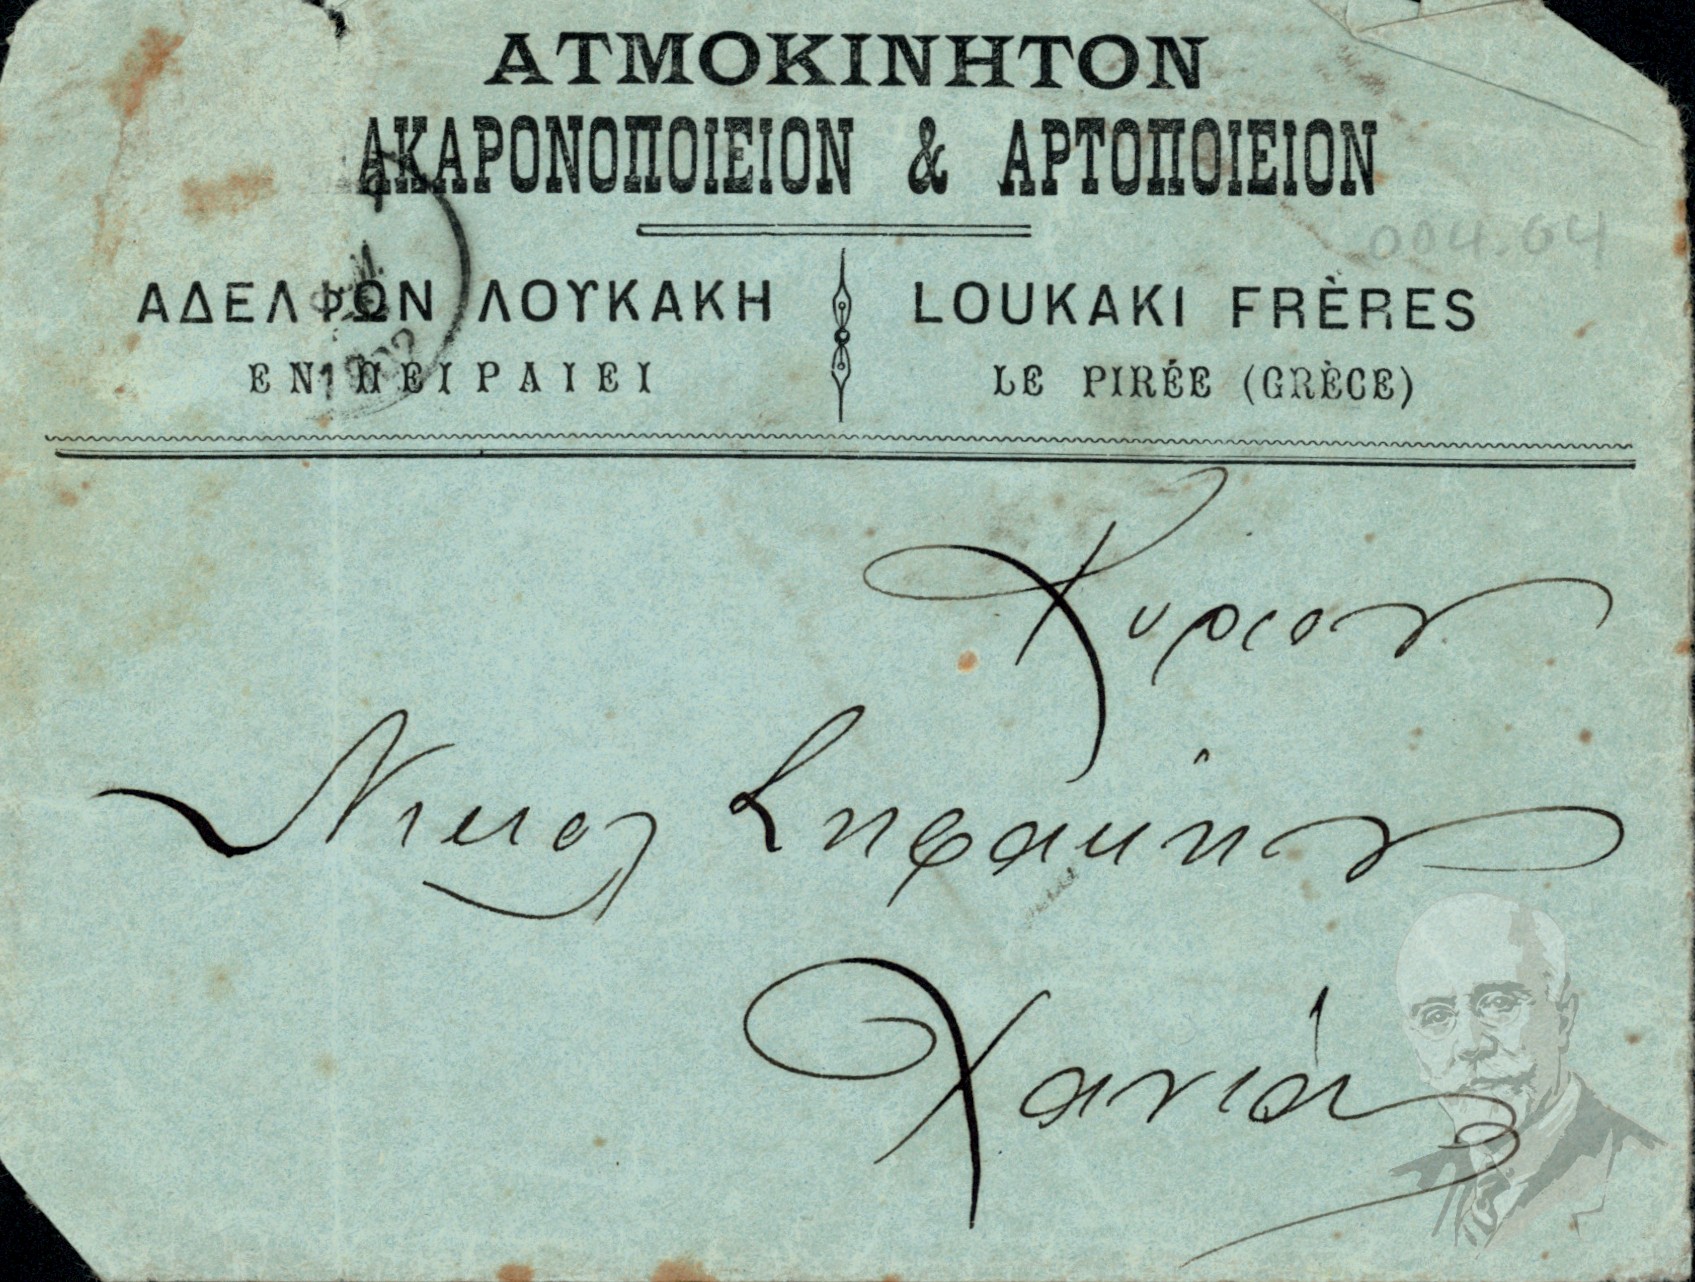 ΑΤΜΟΚΙΝΗΤΟΝ
ΑΚΑΡΟΝΟΠΟΙΕΙΟΝ & ΑΡΤΟΠΟΙΕΙΟΝ
004.64
ΑΔΕΛΦΩΝ ΛΟΥΚΑΚΗ
ΕΝ ΠΕΙΡΑΙΕΙ
LOUKAKI FRÈRES
LE PIRÉE (GRÈCE)
1902
Κύριον
Νικολ Σηφάκην
Χανιά